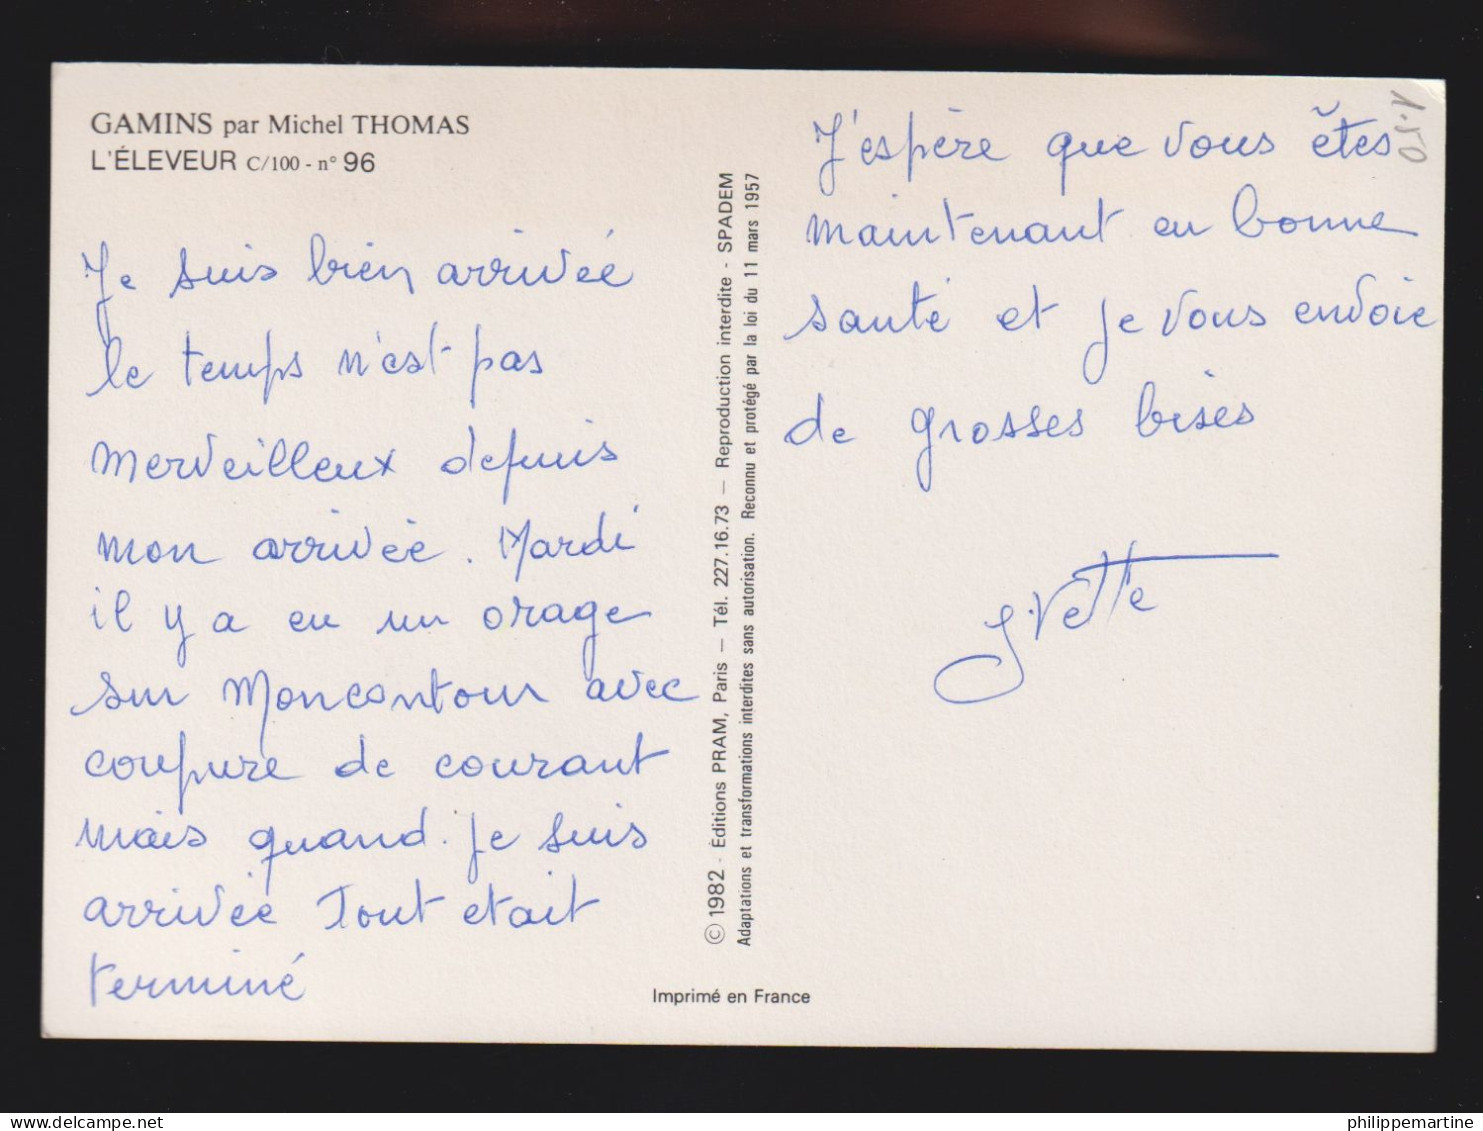 GAMINS par Michel THOMAS
L'ÉLEVEUR C/100 - n° 96
Je suis bien arrivée
le temps n'est pas
merveilleux depuis
mon arrivée. Mardi
il y a eu un orage
sur Moncontour avec
coupure de courant
mais quand je suis
arrivée Tout etait
terminé
© 1982 - Éditions PRAM, Paris — Tél. 227.16.73 — Reproduction interdite - SPADEM
Adaptations et transformations interdites sans autorisation. Reconnu et protégé par la loi du 11 mars 1957
Imprimé en France
J'espère que vous êtes
maintenant en bonne
santé et je vous envoie
de grosses bises
Yvette
1.50
philippemartine